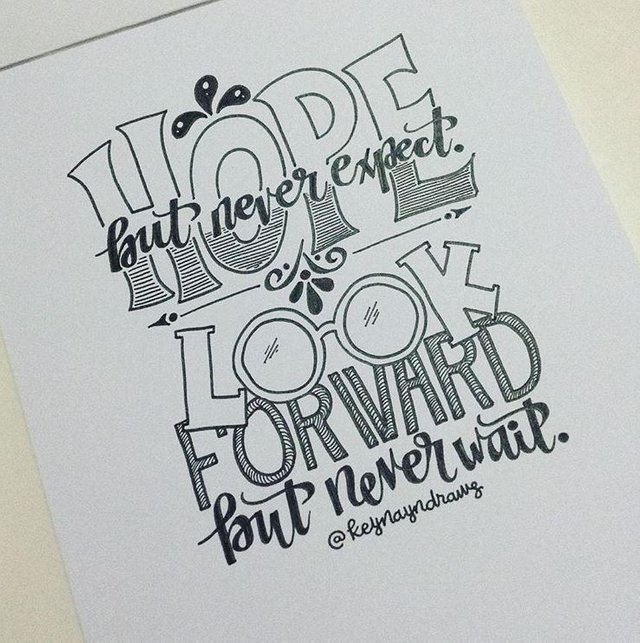 HOPE
but never expect.
LOOK
FORWARD
but never wait.
@keynayndrawz